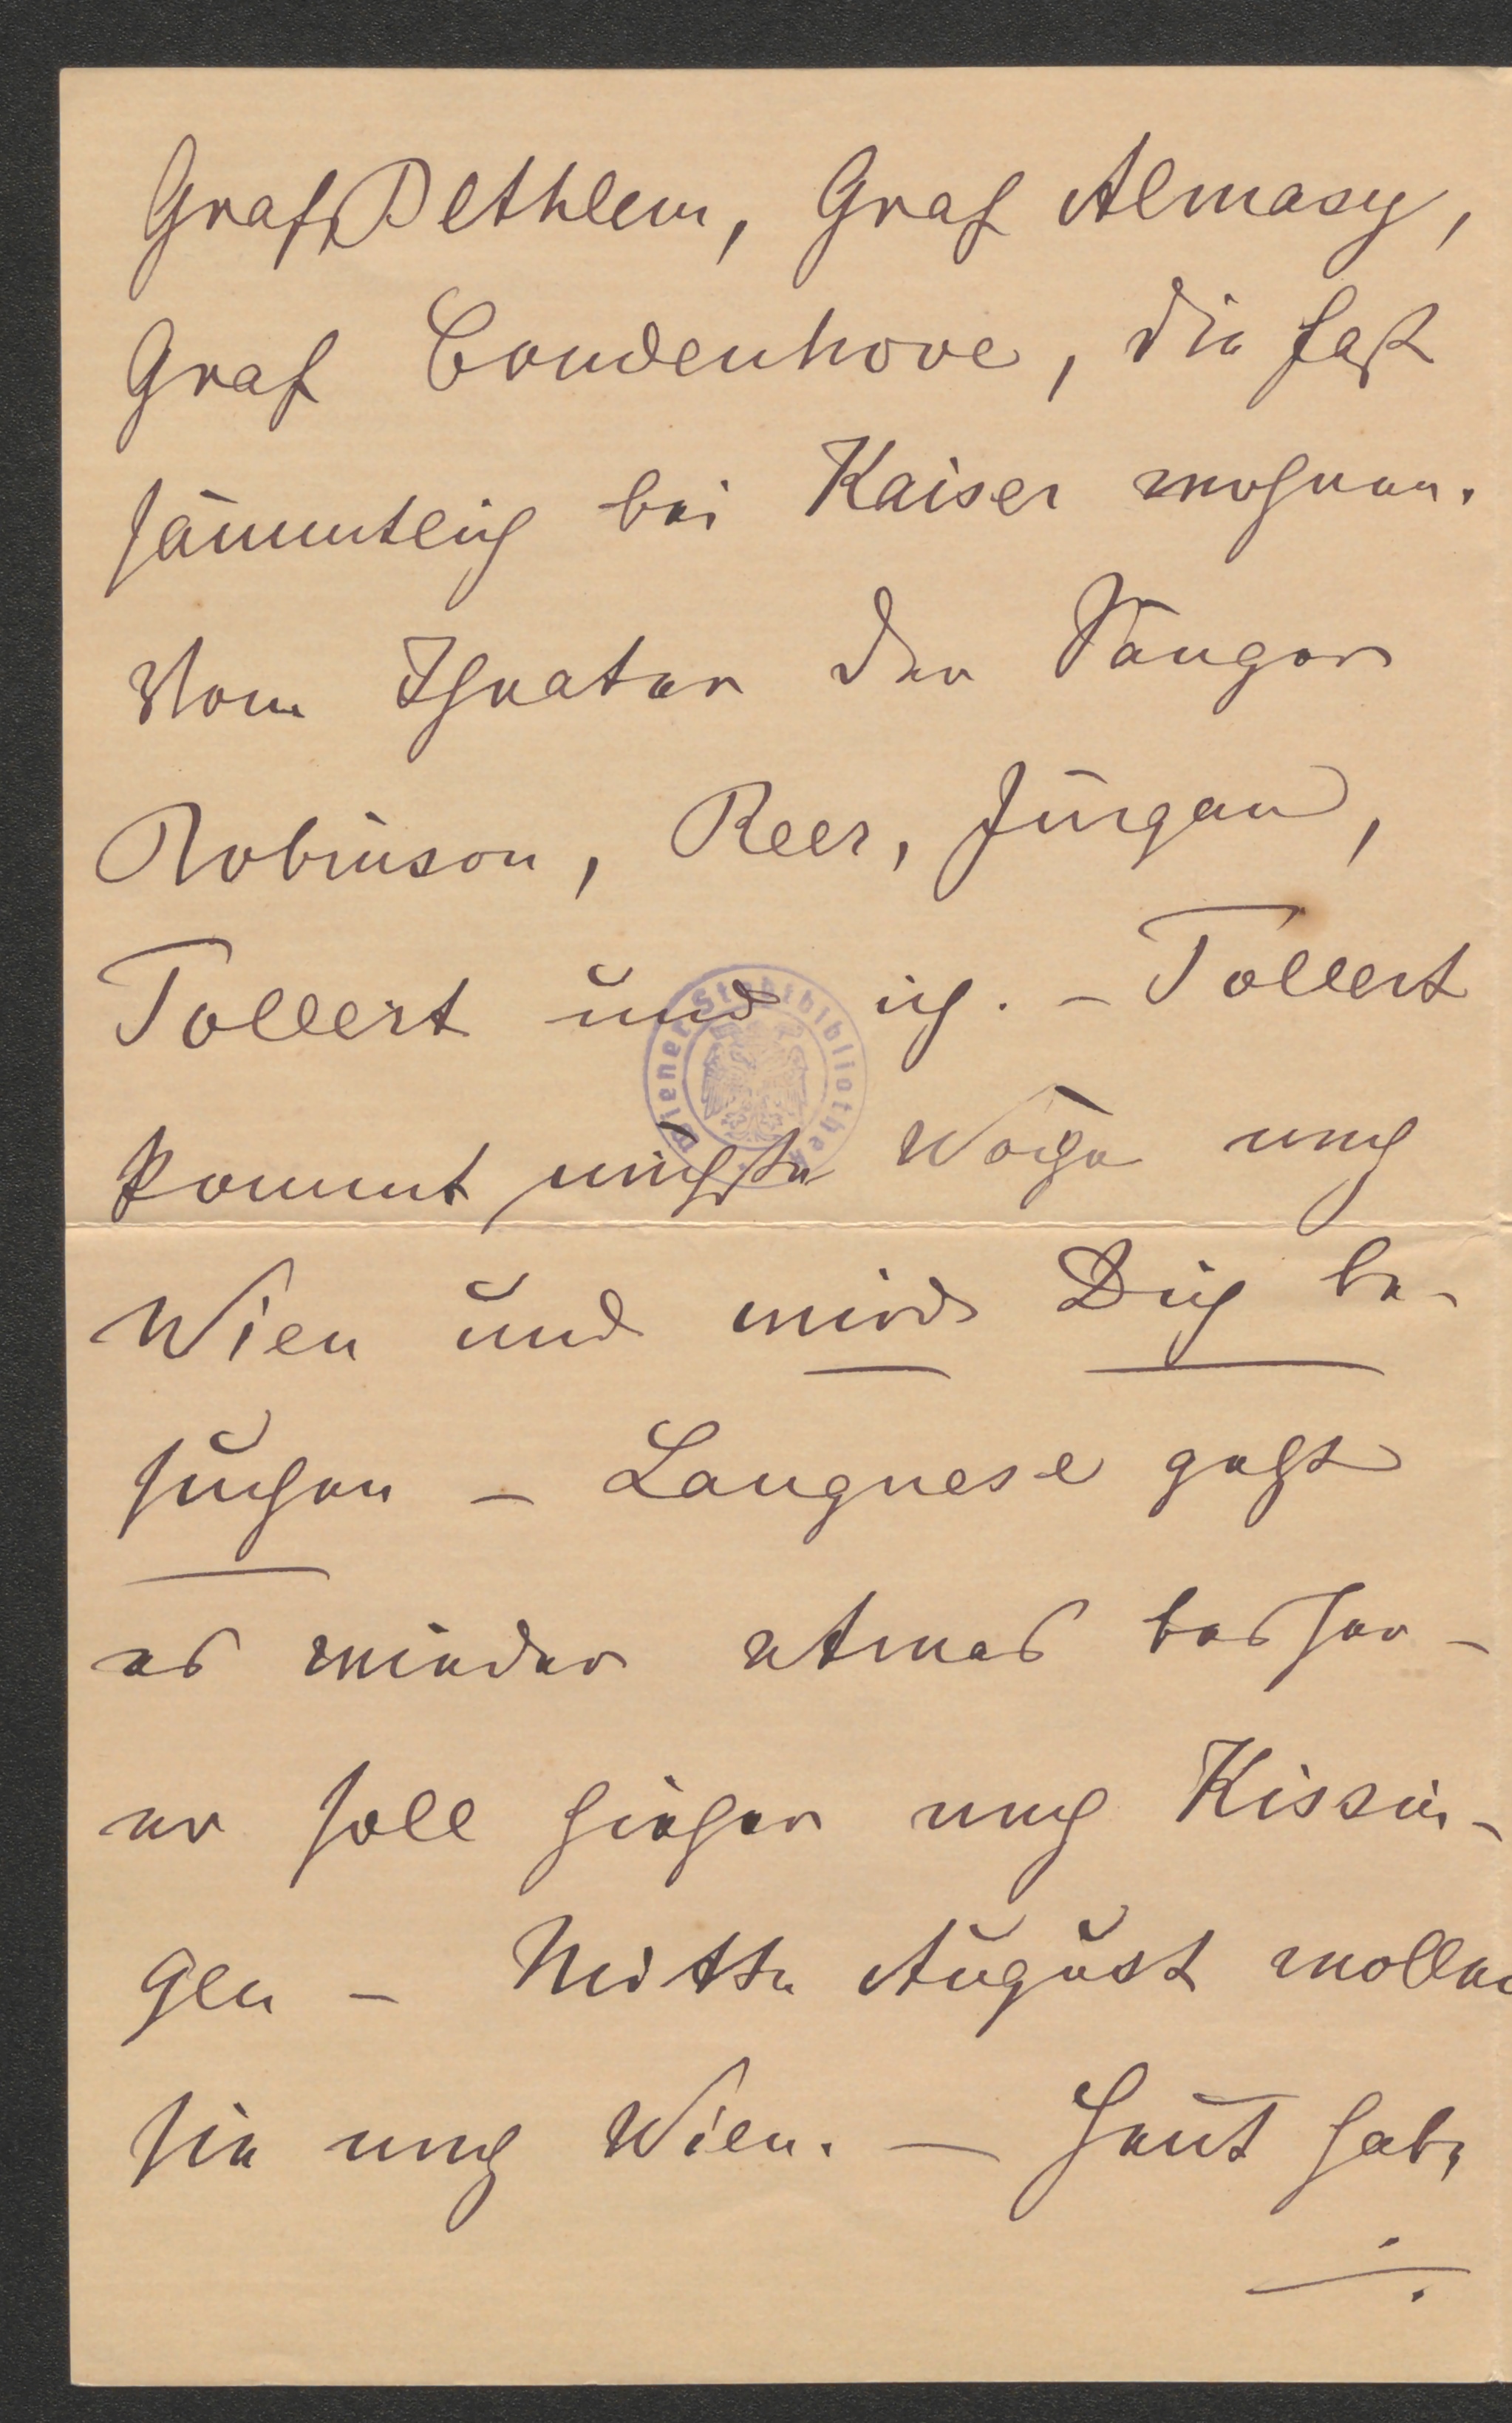 Graf Bethlem, Graf Almasy,
Graf Coudenhove, die fast
sämmtlich bei Kaiser wohnen.
Vom Theater der Sänger
Robinson, Reer, Jürgan,
Tollert und ich. – Tollert
kommt nächste Woche nach
Wien und wird Dich be-
suchen – Langnese geht
es wieder etwas besser –
er soll hieher nach Kissin-
gen – Mitte August wollen
sie nach Wien. – Heut hab,
Wiener Stadtbibliothek